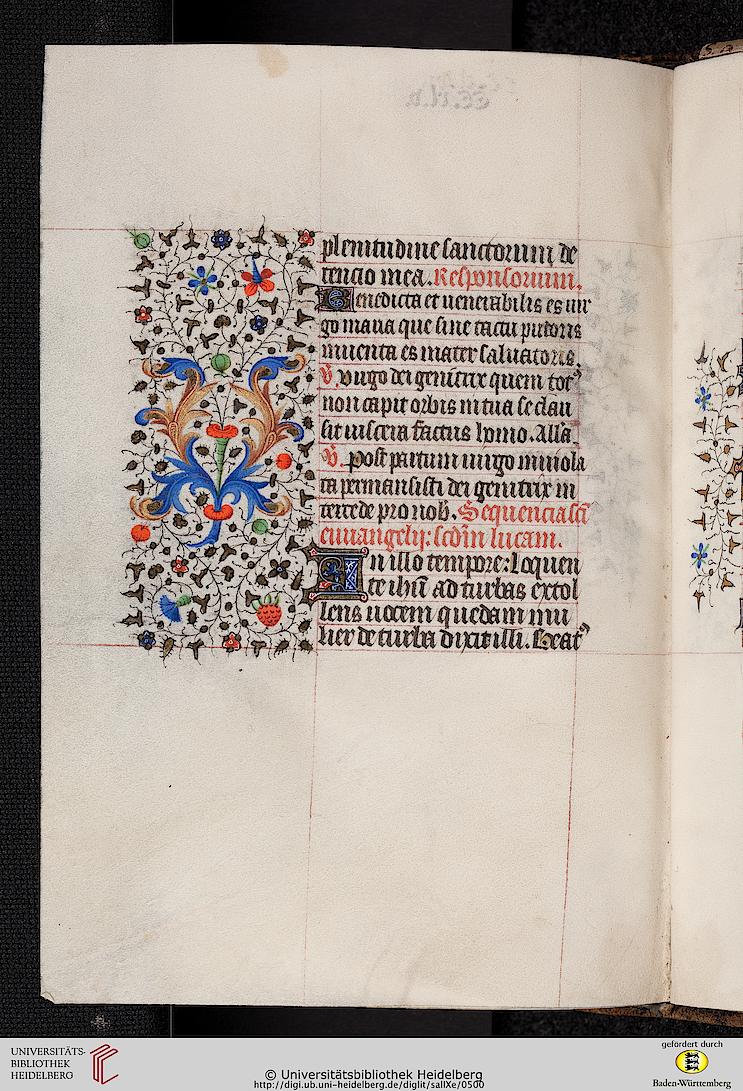 plenitudine sanctorum de
tencio mea. Responsorium.
Benedicta et uenerabilis es uir
go maria que sine tactu pudoris
inuenta es mater saluatoris
℣. Uirgo dei genitrix quem totꝰ
non capit orbis in tua se clau
sit uiscera factus homo. Alla.
℣. Post partum uirgo inuiola
ta permansisti dei genitrix in
tercede pro nob. Sequencia sci
euuangelij: scdm lucam.
In illo tempore: Loquen
te ihu ad turbas extol
lens uocem quedam mu
lier de turba dixit illi. Beatꝰ
UNIVERSITÄTS-
BIBLIOTHEK
HEIDELBERG
© Universitätsbibliothek Heidelberg
http://digi.ub.uni-heidelberg.de/diglit/sallXe/0500
gefördert durch
Baden-Württemberg